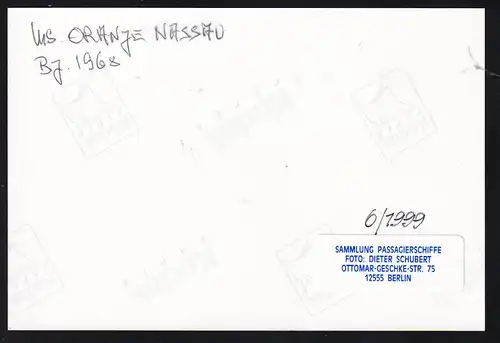 MS. ORANJE NASSAU
Bj. 1968
6/1999
SAMMLUNG PASSAGIERSCHIFFE
FOTO: DIETER SCHUBERT
OTTOMAR-GESCHKE-STR. 75
12555 BERLIN